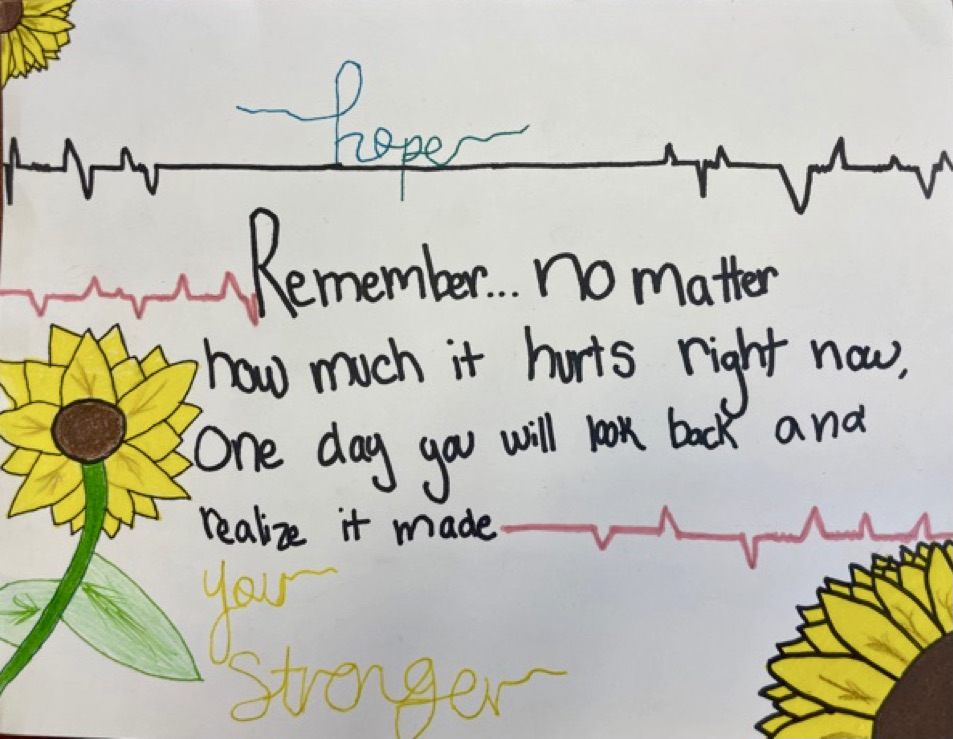 hope
Remember... no matter
how much it hurts right now,
One day you will look back and
realize it made
you
Stronger